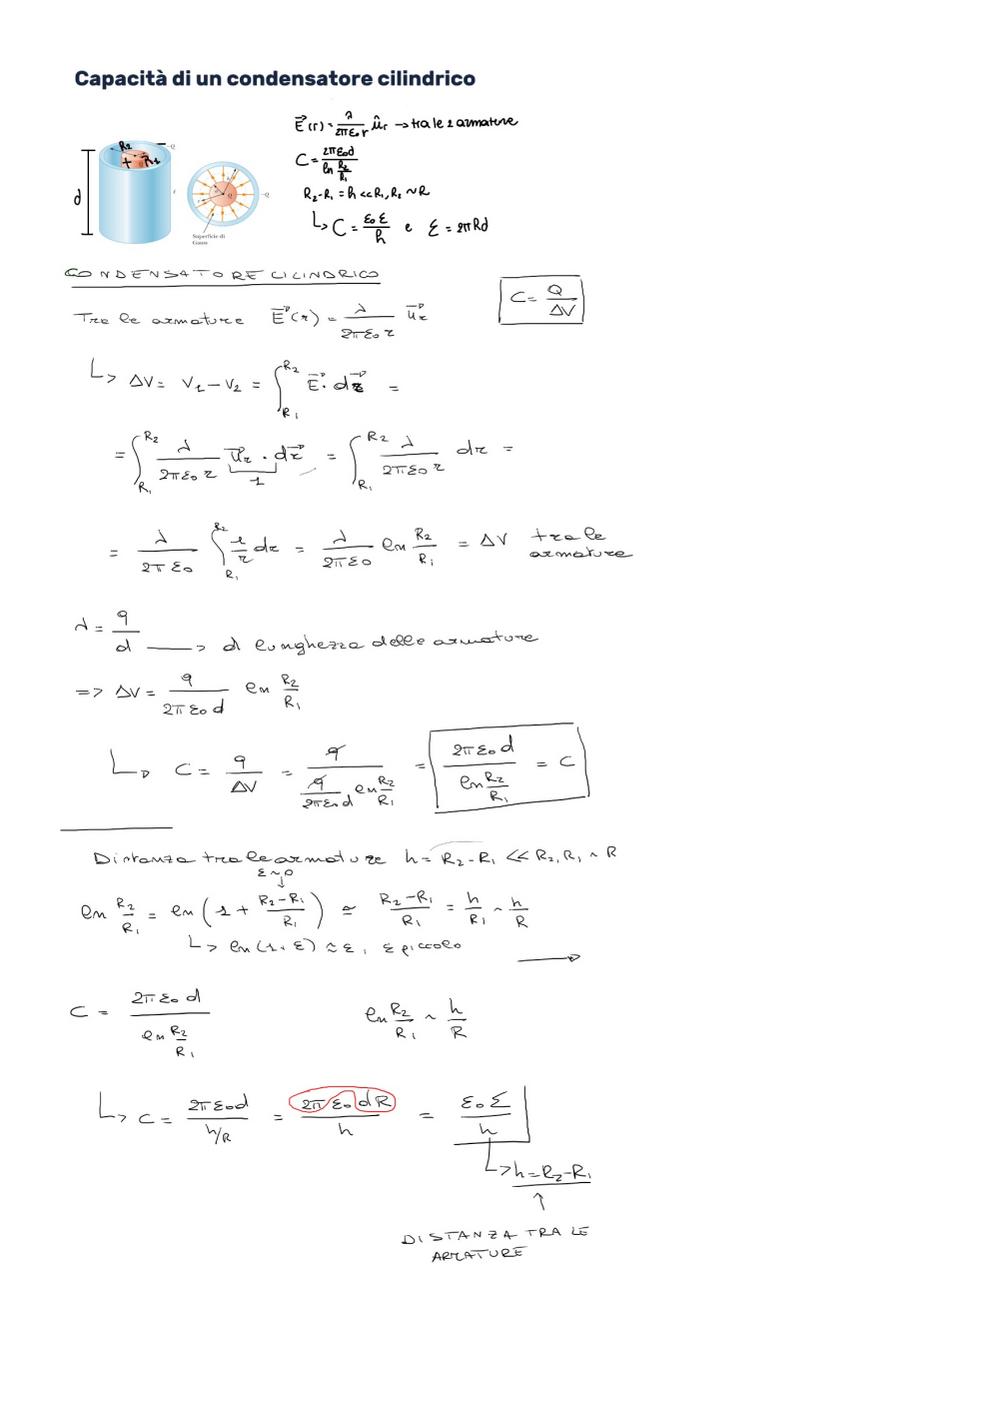 Capacità di un condensatore cilindrico
E⃗(r) = λ/(2πε₀r) û_r → tra le 2 armature
C = 2πε₀d / ln(R₂/R₁)
R₂-R₁ = h << R₁, R₂ ~ R
↳ C = ε₀Σ/h e Σ = 2πRd
d
R₂
R₁
+
-Q
Q
-Q
Superficie di
Gauss
CONDENSATORE CILINDRICO
C = Q/ΔV
Tra le armature E⃗(r) = λ/(2πε₀r) u⃗_r
↳ ΔV = V₁ - V₂ = ∫_{R₁}^{R₂} E⃗ · dr⃗ =
= ∫_{R₁}^{R₂} λ/(2πε₀r) u⃗_r · dr⃗ = ∫_{R₁}^{R₂} λ/(2πε₀r) dr =
1
= λ/(2πε₀) ∫_{R₁}^{R₂} 1/r dr = λ/(2πε₀) ln R₂/R₁ = ΔV tra le armature
λ = q/d → d lunghezza delle armature
=> ΔV = q/(2πε₀d) ln R₂/R₁
↳ C = q/ΔV = q / (q/(2πε₀d) ln R₂/R₁) = 2πε₀d / ln(R₂/R₁) = C
Distanza tra le armature h = R₂-R₁ << R₂, R₁ ~ R
ε~0
↓
ln R₂/R₁ = ln(1 + (R₂-R₁)/R₁) ≃ (R₂-R₁)/R₁ = h/R₁ ~ h/R
↳ ln(1+ε) ≈ ε, ε piccolo →
C = 2πε₀d / ln(R₂/R₁) ln R₂/R₁ ~ h/R
↳ C = 2πε₀d / (h/R) = 2πε₀dR / h = ε₀Σ/h
↳ h = R₂-R₁
↑
DISTANZA TRA LE
ARMATURE